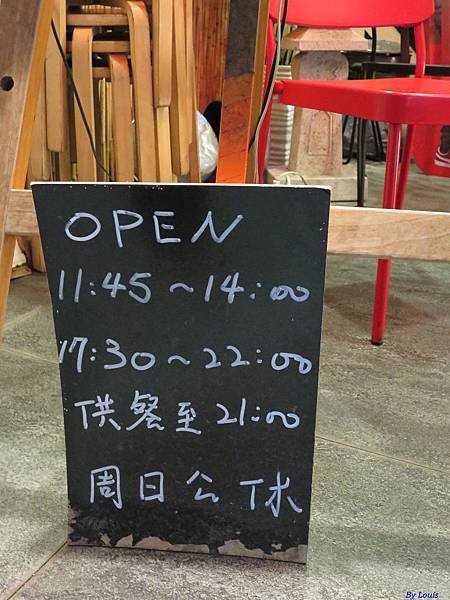 OPEN
11:45~14:00
17:30~22:00
供餐至21:00
周日公休
By Louis